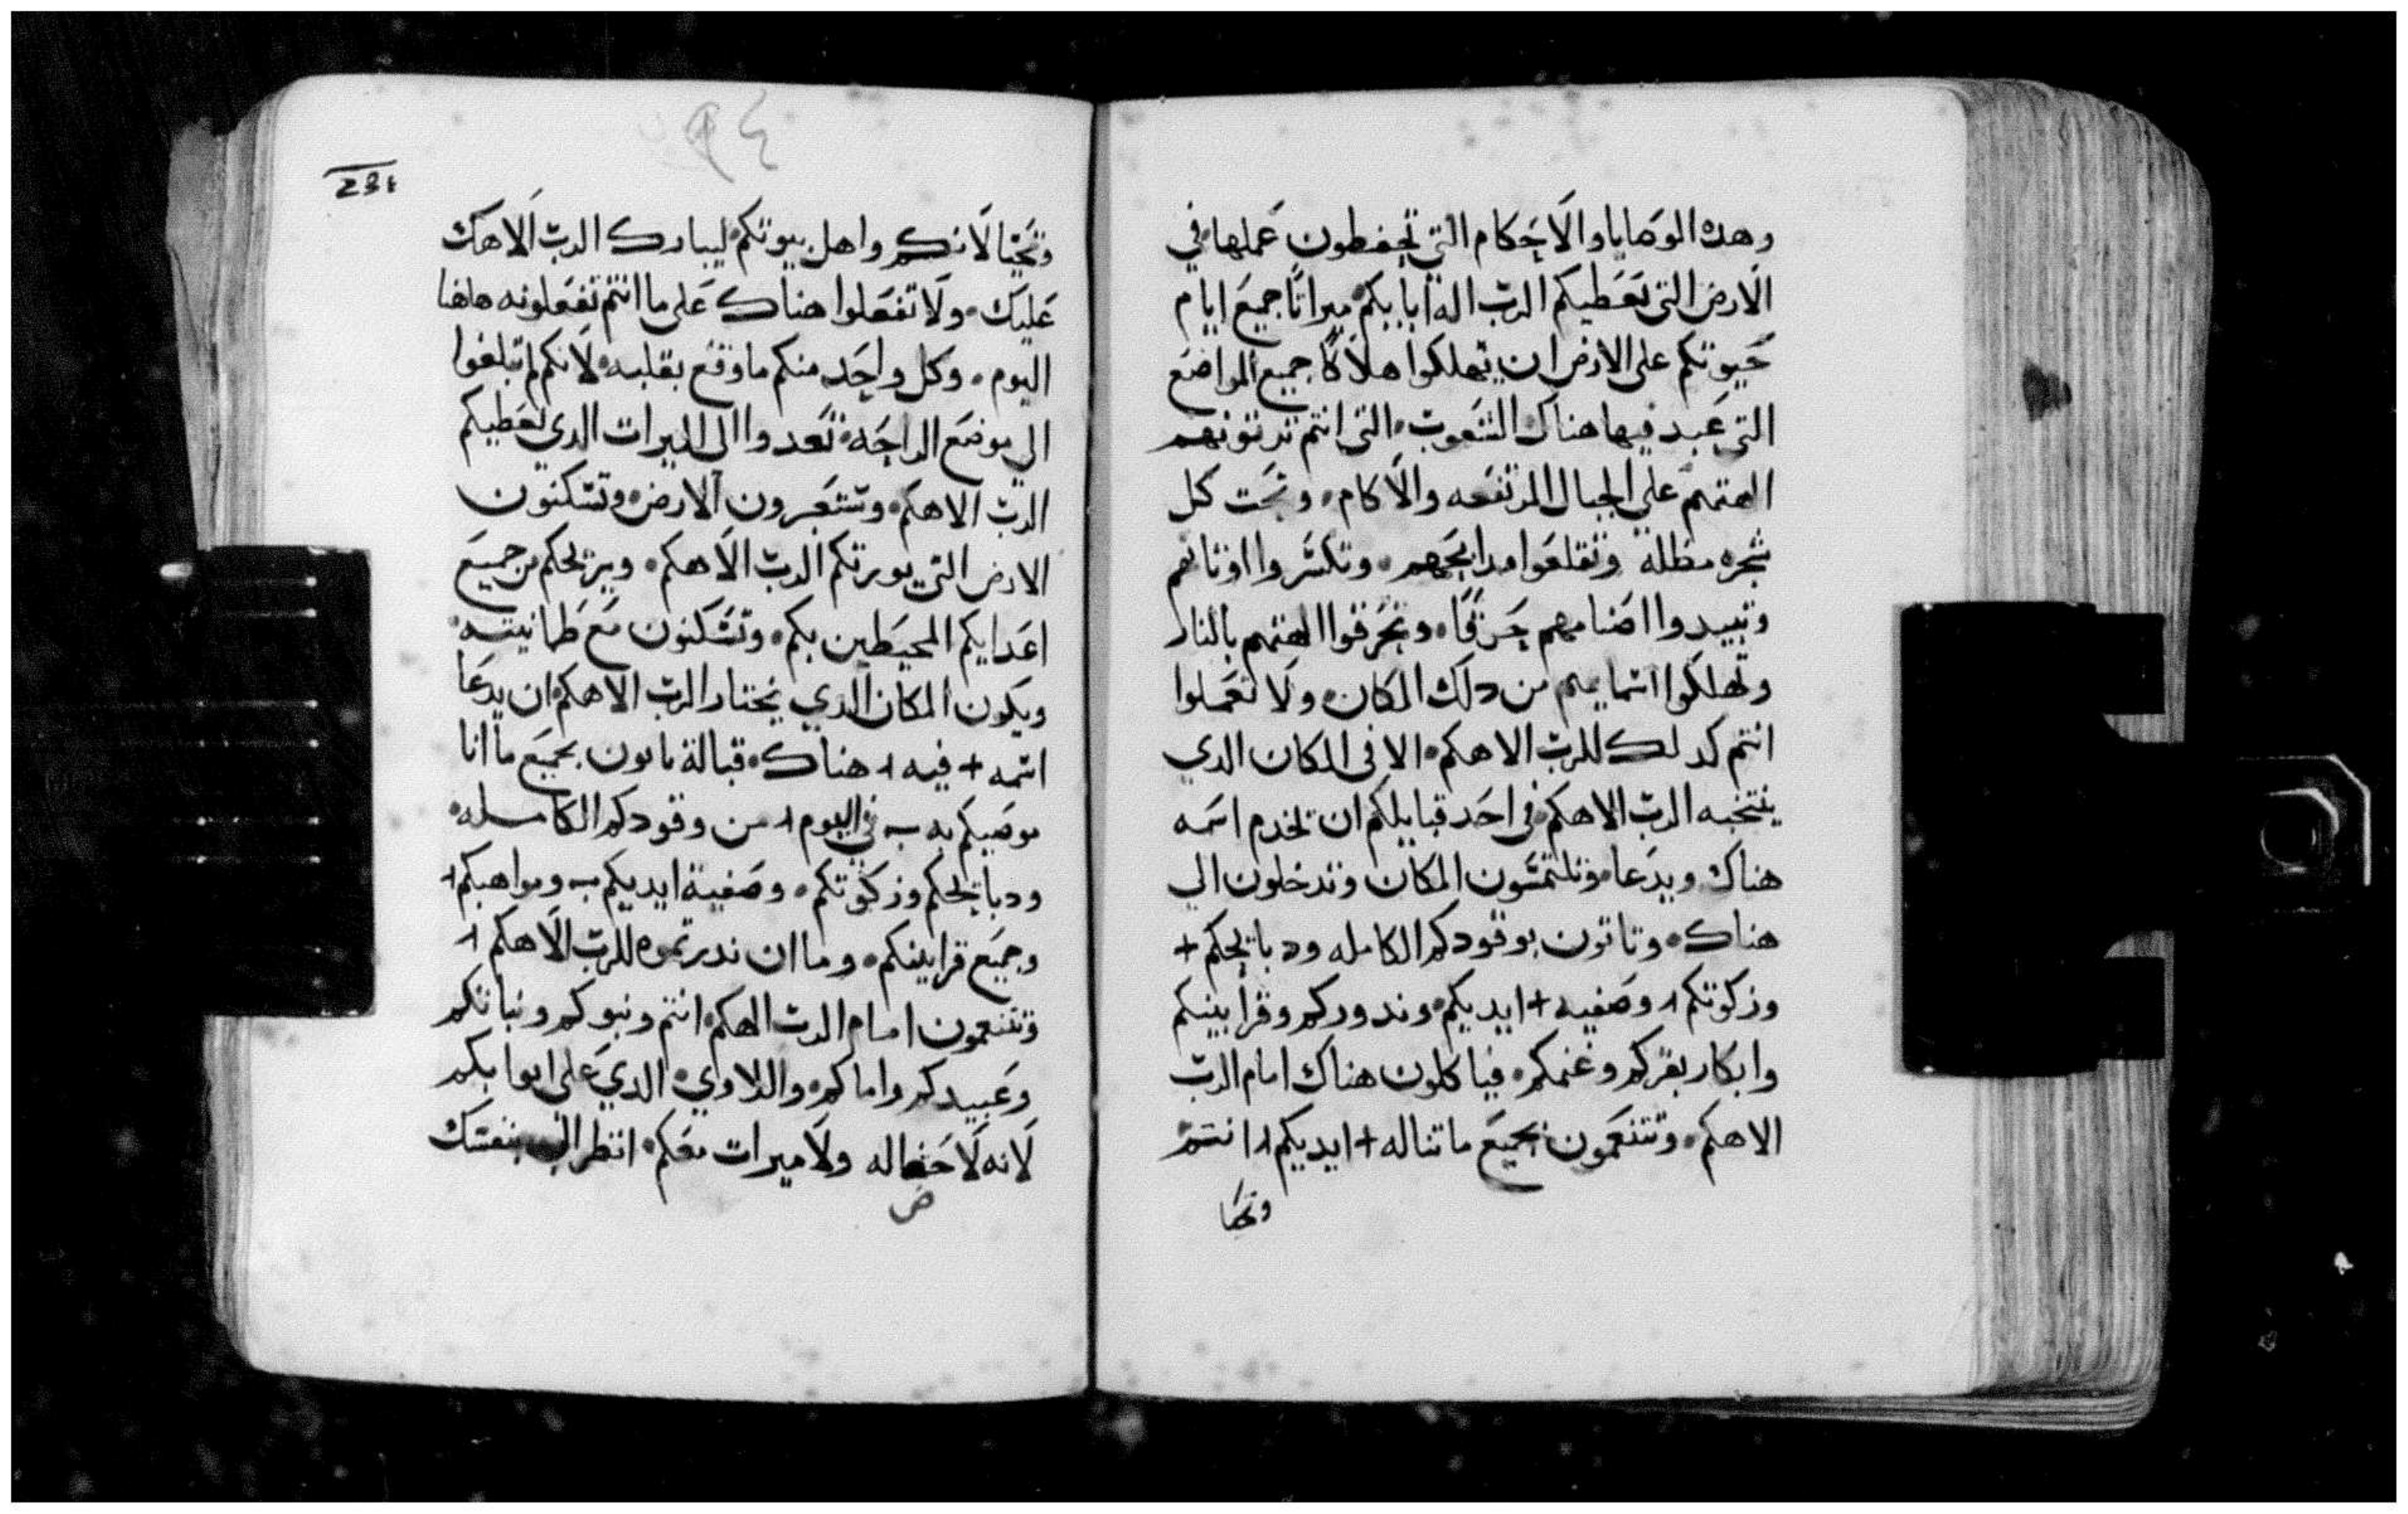 وهده الوصايا والاحكام التي تحفطون عملها في
الارض التي يعطيكم الرب اله ابايكم ميراثا جميع ايام
حيوتكم على الارض ان تهلكوا هلاكا جميع المواضع
التي عبد فيها هناك الشعوب التي انتم ترثونهم
الهتهم علي الجبال المرتفعه والاكام وتحت كل
شجره مظله وتقلعوا مدابحهم وتكسروا اوثانهم
وتبيدوا اصنامهم حرقا وتحرقوا الهتهم بالنار
وتهلكوا اسمايهم من دلك المكان ولا تعملوا
انتم كدلك للرب الاهكم الا في المكان الدي
ينتخبه الرب الاهكم في احد قبايلكم ان تخدم اسمه
هناك ويدعا وتلتمسون المكان وتدخلون الي
هناك وتاتون بوقودكم الكامله ودبايحكم +
وزكوتكم + وصفيه + ايديكم وندوركم وقرابينكم
وابكار بقركم وغنمكم فياكلون هناك امام الرب
الاهكم وتتنعمون بجميع ما تناله + ايديكم + انتم
وتحيا
231
٩٤
وتحيا لانكم واهل بيوتكم ليبارك الرب الاهك
عليك ولا تفعلوا هناك على ما انتم تفعلونه هاهنا
اليوم وكل واحد منكم ما وقع بقلبه لانكم لم تبلغوا
الي موضع الراحه تعدوا الى الميرات الدي يعطيكم
الرب الاهكم وستعبرون الارض وتسكنون
الارض التي يورثكم الرب الاهكم ويريحكم من جميع
اعدايكم المحيطين بكم وتسكنون مع طمانينه
ويكون المكان الدي يختار الرب الاهكم ان يدعا
اسمه + فيه + هناك قبالة ياتون بجميع ما انا
موصيكم به في اليوم + من وقودكم الكامله
ودبايحكم وزكوتكم وصفية ايديكم ومواهبكم +
وجميع قرابينكم وما ان ندرتموه للرب الاهكم +
وتتنعمون امام الرب الهكم انتم وبنوكم وبناتكم
وعبيدكم واماكم واللاوي الدي على ابوابكم
لانه لا حظ له ولا ميرات معكم انظر بنفسك
ض